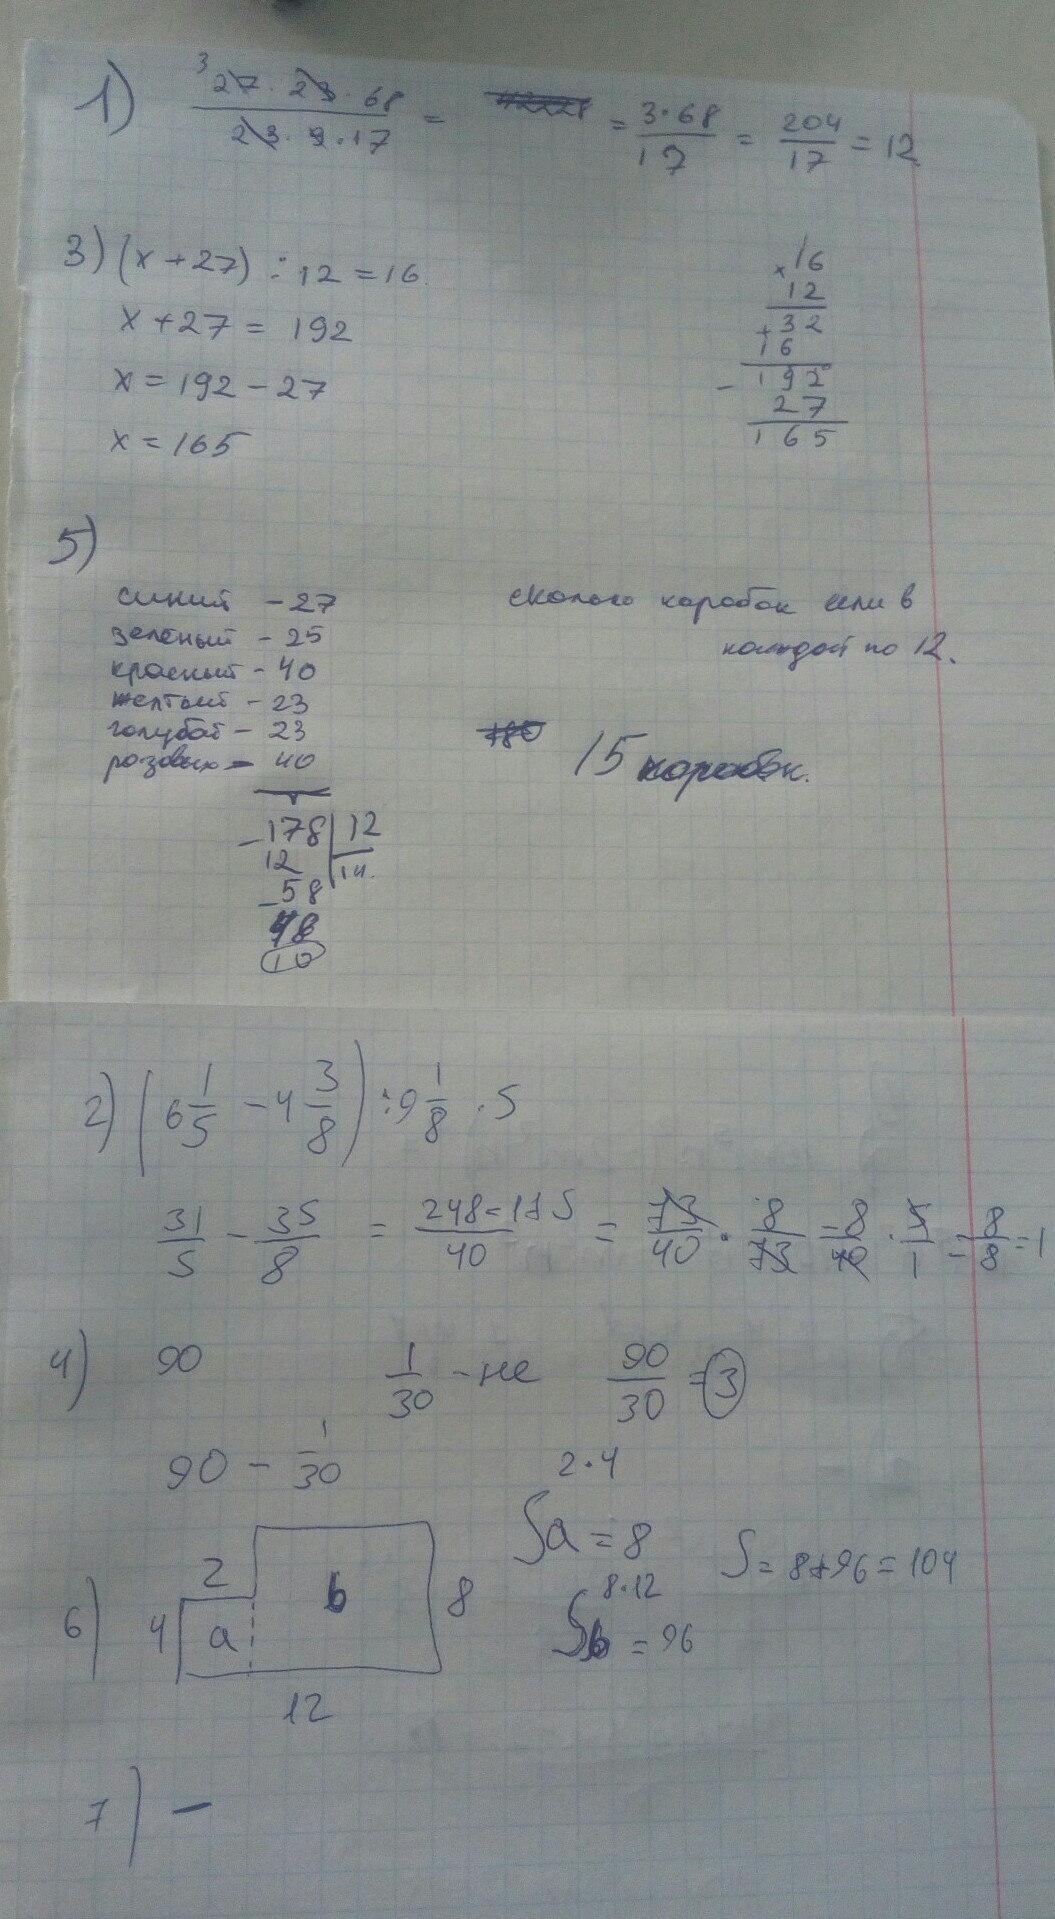 1) 3 27 · 23 · 68 / 23 · 9 · 17 = 42228 = 3·68 / 17 = 204 / 17 = 12
3) (x + 27) ÷ 12 = 16
x + 27 = 192
x = 192 − 27
x = 165
× 16
12
+ 32
16
− 192
27
165
5)
синий - 27
зелёный - 25
красный - 40
желтый - 23
голубой - 23
розовых - 40
сколько коробок если в
каждой по 12.
180
15 коробок.
− 178 | 12
12 14.
− 58
48
10
2) (6 1/5 − 4 3/8) ÷ 9 1/8 · 5
31/5 − 35/8 = 248 − 175 / 40 = 73/40 · 8/73 = 8/40 · 5/1 = 8/8 = 1
4) 90 1/30 - не 90/30 = 3
90 − 1/30
6) 2
4
a
b
8
12
2·4
Sa = 8
8·12
Sb = 96
S = 8+96 = 104
7) −